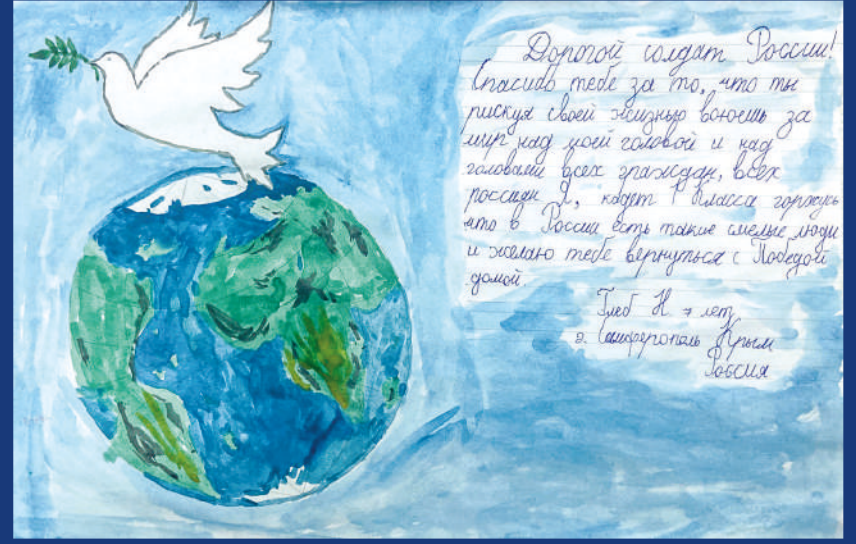 Дорогой солдат России!
Спасибо тебе за то, что ты
рискуя своей жизнью воюешь за
мир над моей головой и над
головами всех граждан, всех
россиян Я, кадет 1 класса горжусь
что в России есть такие смелые люди
и желаю тебе вернуться с Победой
домой.
Глеб Н. 7 лет
г. Симферополь Крым
Россия